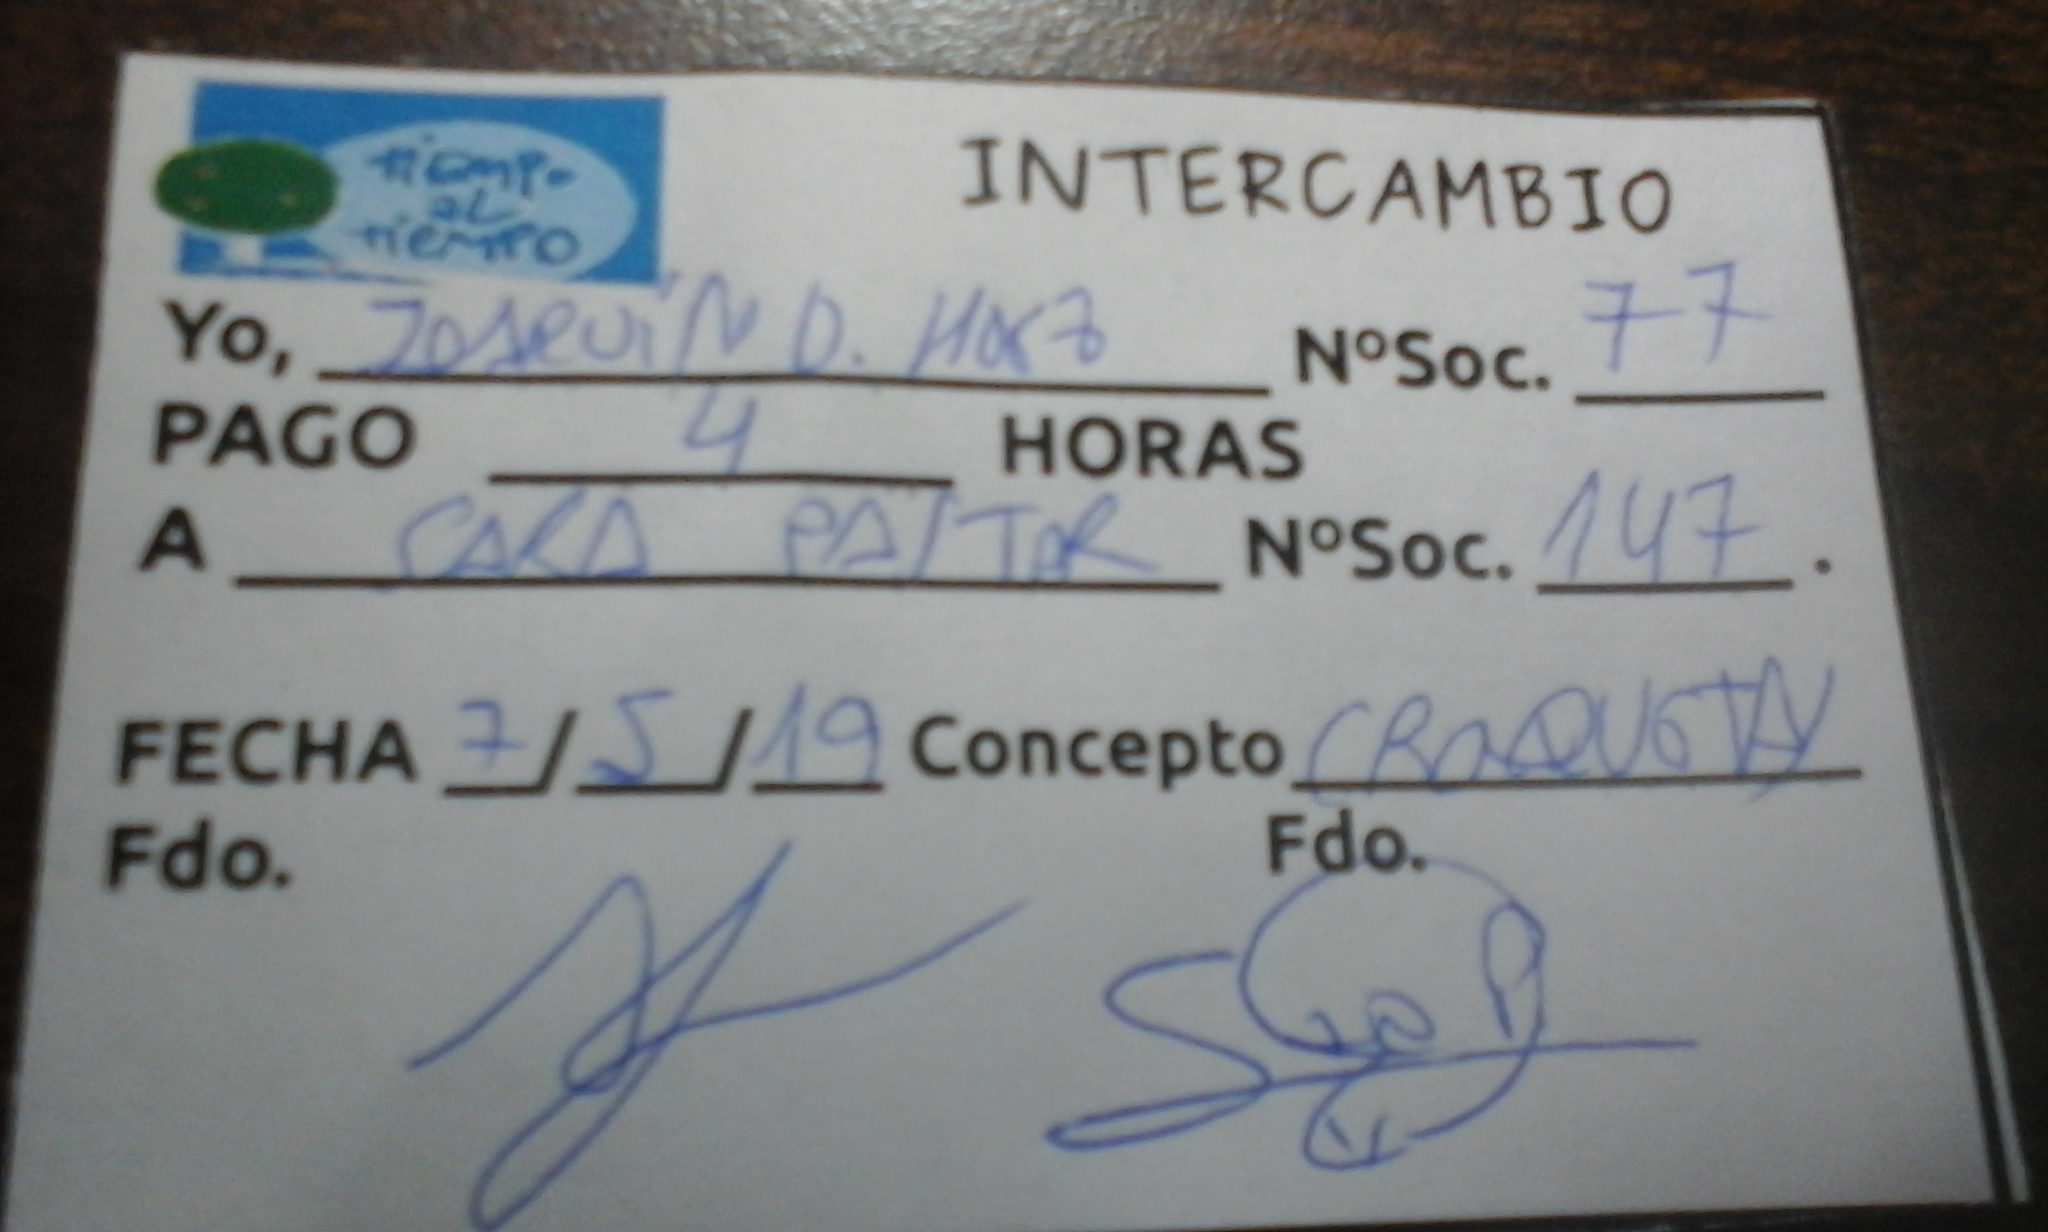 tiempo
al
tiempo
INTERCAMBIO
Yo, JOAQUÍN D. NºSoc. 77
PAGO 4 HORAS
A PASTOR NºSoc. 147.
FECHA 7/5/19 Concepto CROQUETAS
Fdo. Fdo.